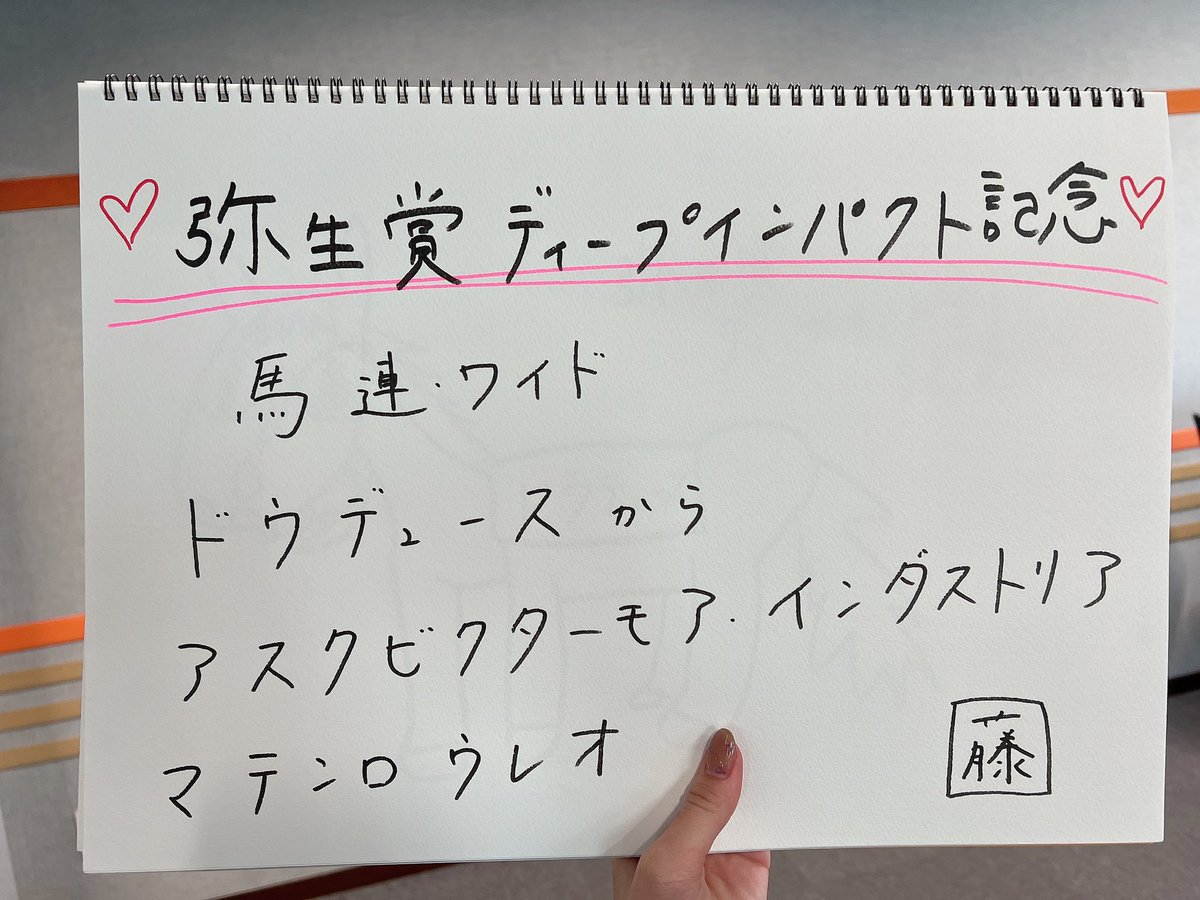 弥生賞ディープインパクト記念
馬連・ワイド
ドウデュースから
アスクビクターモア・インダストリア
マテンロウレオ
藤